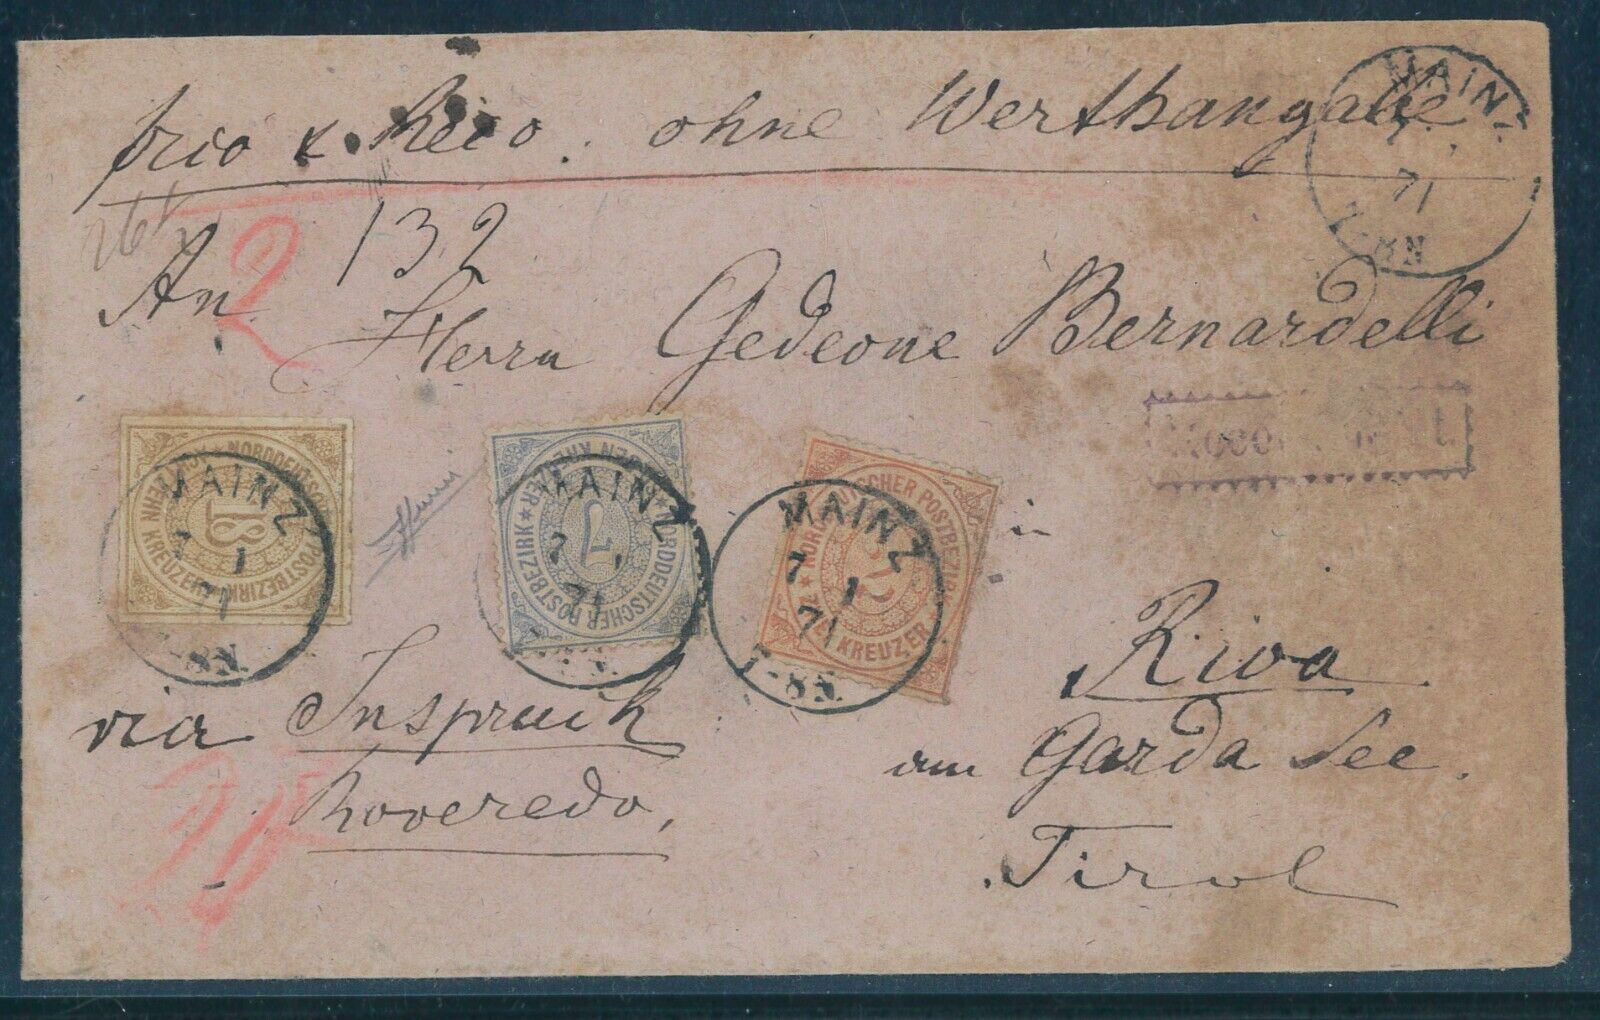 frco & Reco. ohne Werthangabe
MAINZ
7 1
71
7-8N
132
2
An
Herrn Gedeone Bernardelli
NORDDEUTSCHER POSTBEZIRK
18
KREUZER
MAINZ
7 1
71
7-8N.
NORDDEUTSCHER POSTBEZIRK
7
SIEBEN KREUZER
MAINZ
7 1
71
NORDDEUTSCHER POSTBEZIRK
2
ZWEI KREUZER
MAINZ
7 1
71
7-8N.
in
Riva
via Inspruck
am Garda See.
Roveredo,
Tirol